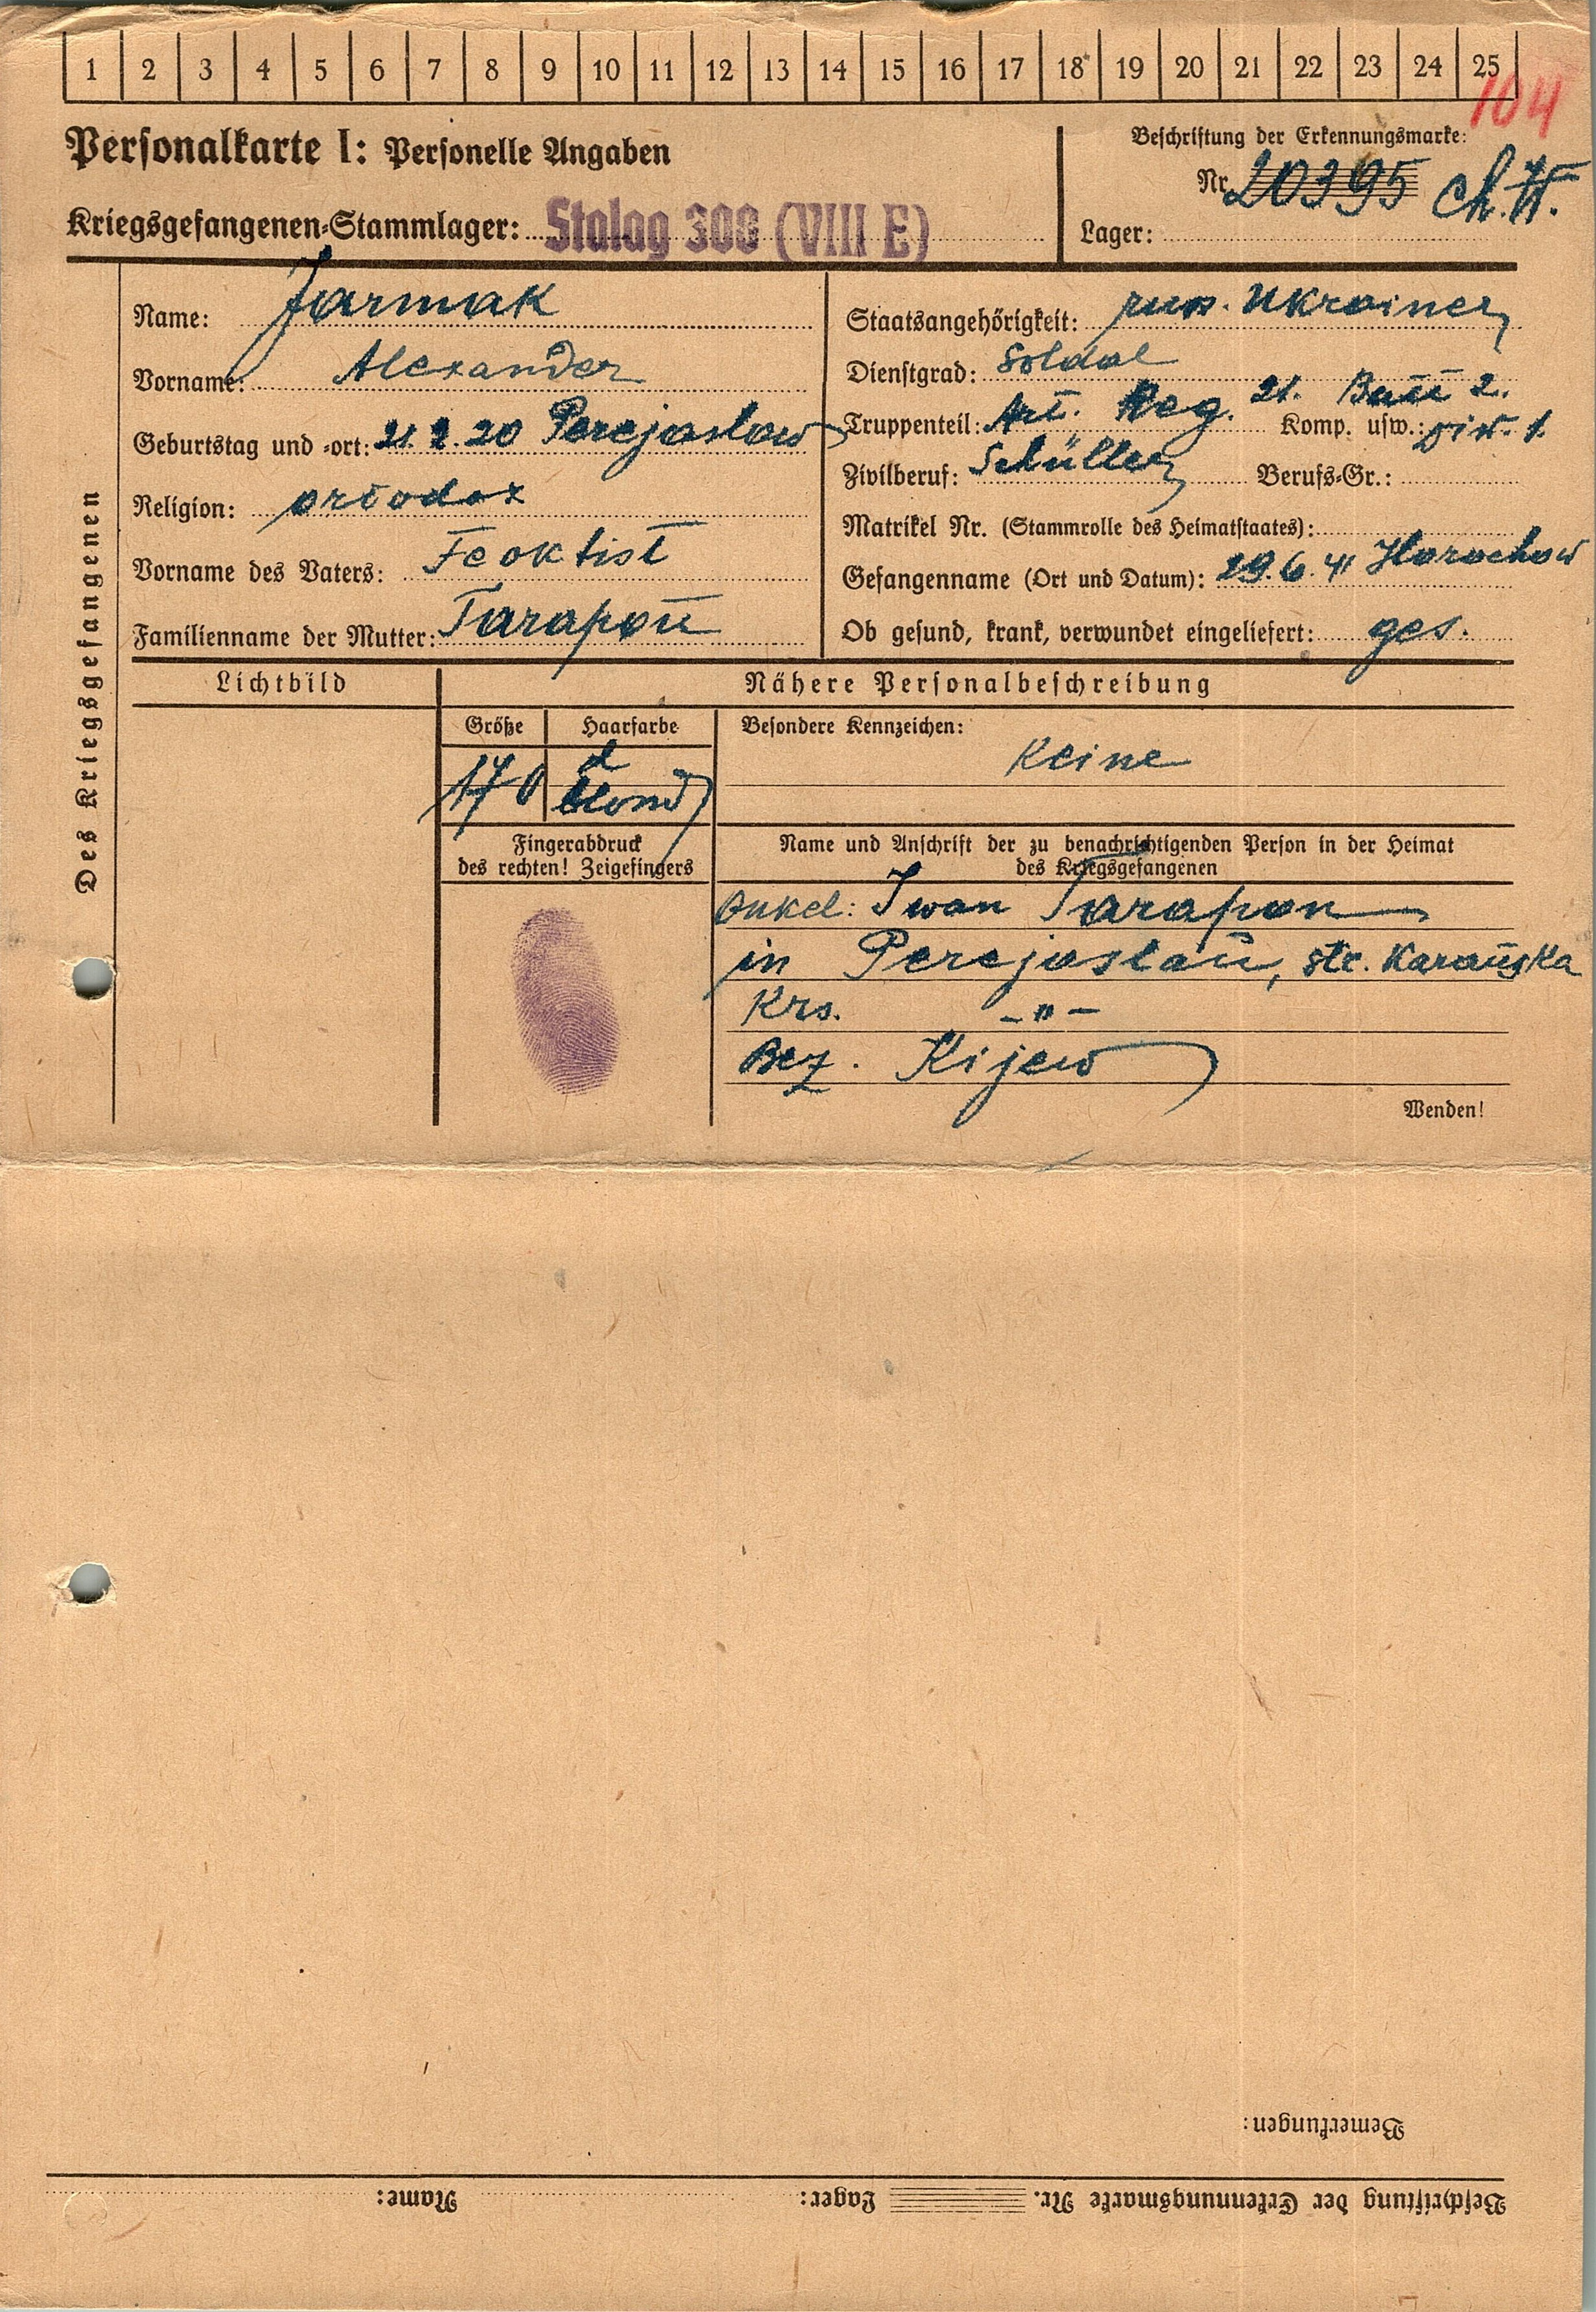 1 2 3 4 5 6 7 8 9 10 11 12 13 14 15 16 17 18 19 20 21 22 23 24 25
104
Personalkarte I: Personelle Angaben
Beschriftung der Erkennungsmarke:
Nr. 20395
Kriegsgefangenen-Stammlager: Stalag 308 (VIII E)
Lager:
Des Kriegsgefangenen
Name: Jarmak
Vorname: Alexander
Geburtstag und -ort: 21. 2. 20 Perejaslow
Religion: ortodox
Vorname des Vaters: Feoktist
Familienname der Mutter: Tarapoŭ
Staatsangehörigkeit: russ. Ukrainer
Dienstgrad: Soldat
Truppenteil: Art. Reg. 21. Batt 2. Komp. usw.: Div. 1.
Zivilberuf: Schüller Berufs-Gr.:
Matrikel Nr. (Stammrolle des Heimatstaates):
Gefangenname (Ort und Datum): 29. 6. 41 Horochow
Ob gesund, krank, verwundet eingeliefert: ges.
Lichtbild
Nähere Personalbeschreibung
Größe Haarfarbe
170 d blond
Besondere Kennzeichen:
Keine
Fingerabdruck
des rechten! Zeigefingers
Name und Anschrift der zu benachrichtigenden Person in der Heimat
des Kriegsgefangenen
Onkel: Iwan Tarapon
in Perejaslaŭ, str. Karaŭska
Krs. -"-
Bez. Kijew
Wenden!
Bemerkungen:
Beschriftung der Erkennungsmarke Nr. Lager: Name: